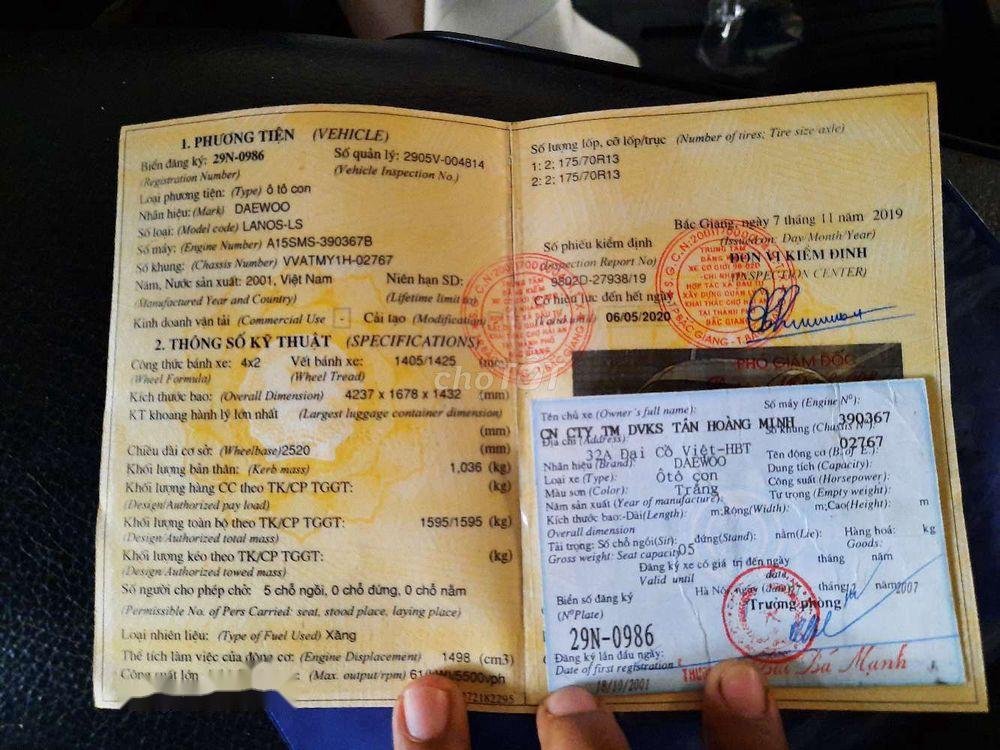 1. PHƯƠNG TIỆN (VEHICLE)
Biển đăng ký: 29N-0986 Số quản lý: 2905V-004814
(Registration Number) (Vehicle Inspection No.)
Loại phương tiện: (Type) ô tô con
Nhãn hiệu: (Mark) DAEWOO
Số loại: (Model code) LANOS-LS
Số máy: (Engine Number) A15SMS-390367B
Số khung: (Chassis Number) VVATMY1H-02767
Năm, Nước sản xuất: 2001, Việt Nam Niên hạn SD:
(Manufactured Year and Country) (Lifetime limit to)
Kinh doanh vận tải (Commercial Use - Cải tạo (Modification)
2. THÔNG SỐ KỸ THUẬT (SPECIFICATIONS)
Công thức bánh xe: 4x2 Vết bánh xe: 1405/1425 (mm)
(Wheel Formula) (Wheel Tread)
Kích thước bao: (Overall Dimension) 4237 x 1678 x 1432 (mm)
KT khoang hành lý lớn nhất (Largest luggage container dimension)
(mm)
Chiều dài cơ sở: (Wheelbase) 2520 (mm)
Khối lượng bản thân: (Kerb mass) 1,036 (kg)
Khối lượng hàng CC theo TK/CP TGGT: (kg)
(Design/Authorized pay load)
Khối lượng toàn bộ theo TK/CP TGGT: 1595/1595 (kg)
(Design/Authorized total mass)
Khối lượng kéo theo TK/CP TGGT: (kg)
(Design/Authorized towed mass)
Số người cho phép chở: 5 chỗ ngồi, 0 chỗ đứng, 0 chỗ nằm
(Permissible No. of Pers Carried: seat, stood place, laying place)
Loại nhiên liệu: (Type of Fuel Used) Xăng
Thể tích làm việc của động cơ: (Engine Displacement) 1498 (cm3)
Công suất lớn (Max. output/rpm) 5500vph
Số lượng lốp, cỡ lốp/trục (Number of tires; Tire size axle)
1: 2; 175/70R13
2: 2; 175/70R13
Bắc Giang, ngày 7 tháng 11 năm 2019
(Issued on: Day/Month/Year)
Số phiếu kiểm định ĐƠN VỊ KIỂM ĐỊNH
(Inspection Report No) (INSPECTION CENTER)
9802D-27938/19
Có hiệu lực đến hết ngày
06/05/2020
PHÓ GIÁM ĐỐC
choTỐT
Tên chủ xe (Owner's full name): Số máy (Engine Nº):
CN CTY TM DVKS TÂN HOÀNG MINH 390367
Địa chỉ (Address): Số khung (Chassis Nº):
32A Đại Cồ Việt-HBT 02767
Nhãn hiệu (Brand): DAEWOO Tên động cơ (B. of E.):
Loại xe (Type): Ôtô con Dung tích (Capacity):
Màu sơn (Color): Trắng Công suất (Horsepower):
Năm sản xuất (Year of manufacture): Tự trọng (Empty weight):
Kích thước bao:-Dài(Length): m;Rộng(Width): m;Cao(Height): m
Overall dimension
Tải trọng: Số chỗ ngồi(Sit): đứng(Stand): nằm(Lie): Hàng hoá: kg
Gross weight: Seat capacity 05 Goods:
Đăng ký xe có giá trị đến ngày tháng năm
Valid until date,
Hà Nội, ngày (date) tháng năm 2007
Biển số đăng ký Trưởng phòng
(NºPlate)
29N-0986
Đăng ký lần đầu ngày:
Date of first registration
18/10/2001
Bùi Bá Mạnh